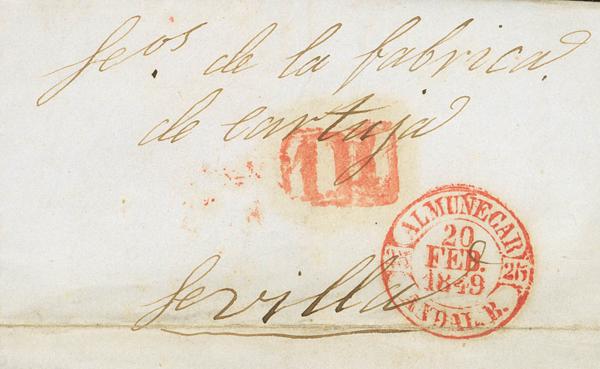 Seos. de la fabrica
de cartuja
ALMUÑECAR
20
FEB.
1849
25 25
ANDAL. B.
Sevilla